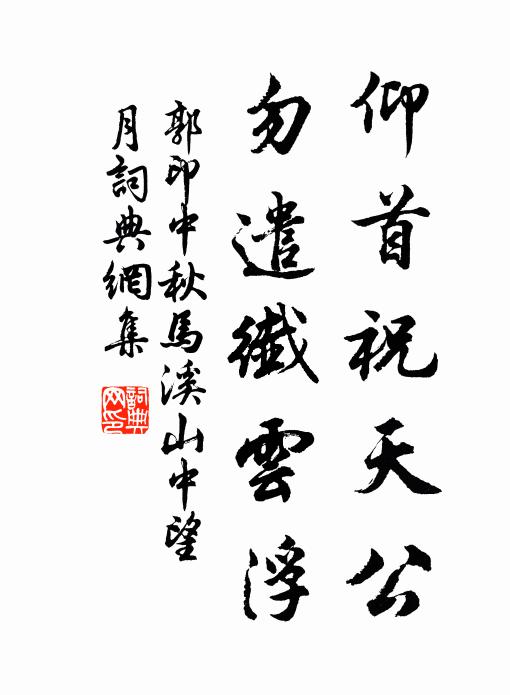 仰首祝天公
勿遣纖雲浮
郭印中秋馬溪山中望
月詞典網集
詞典
网印